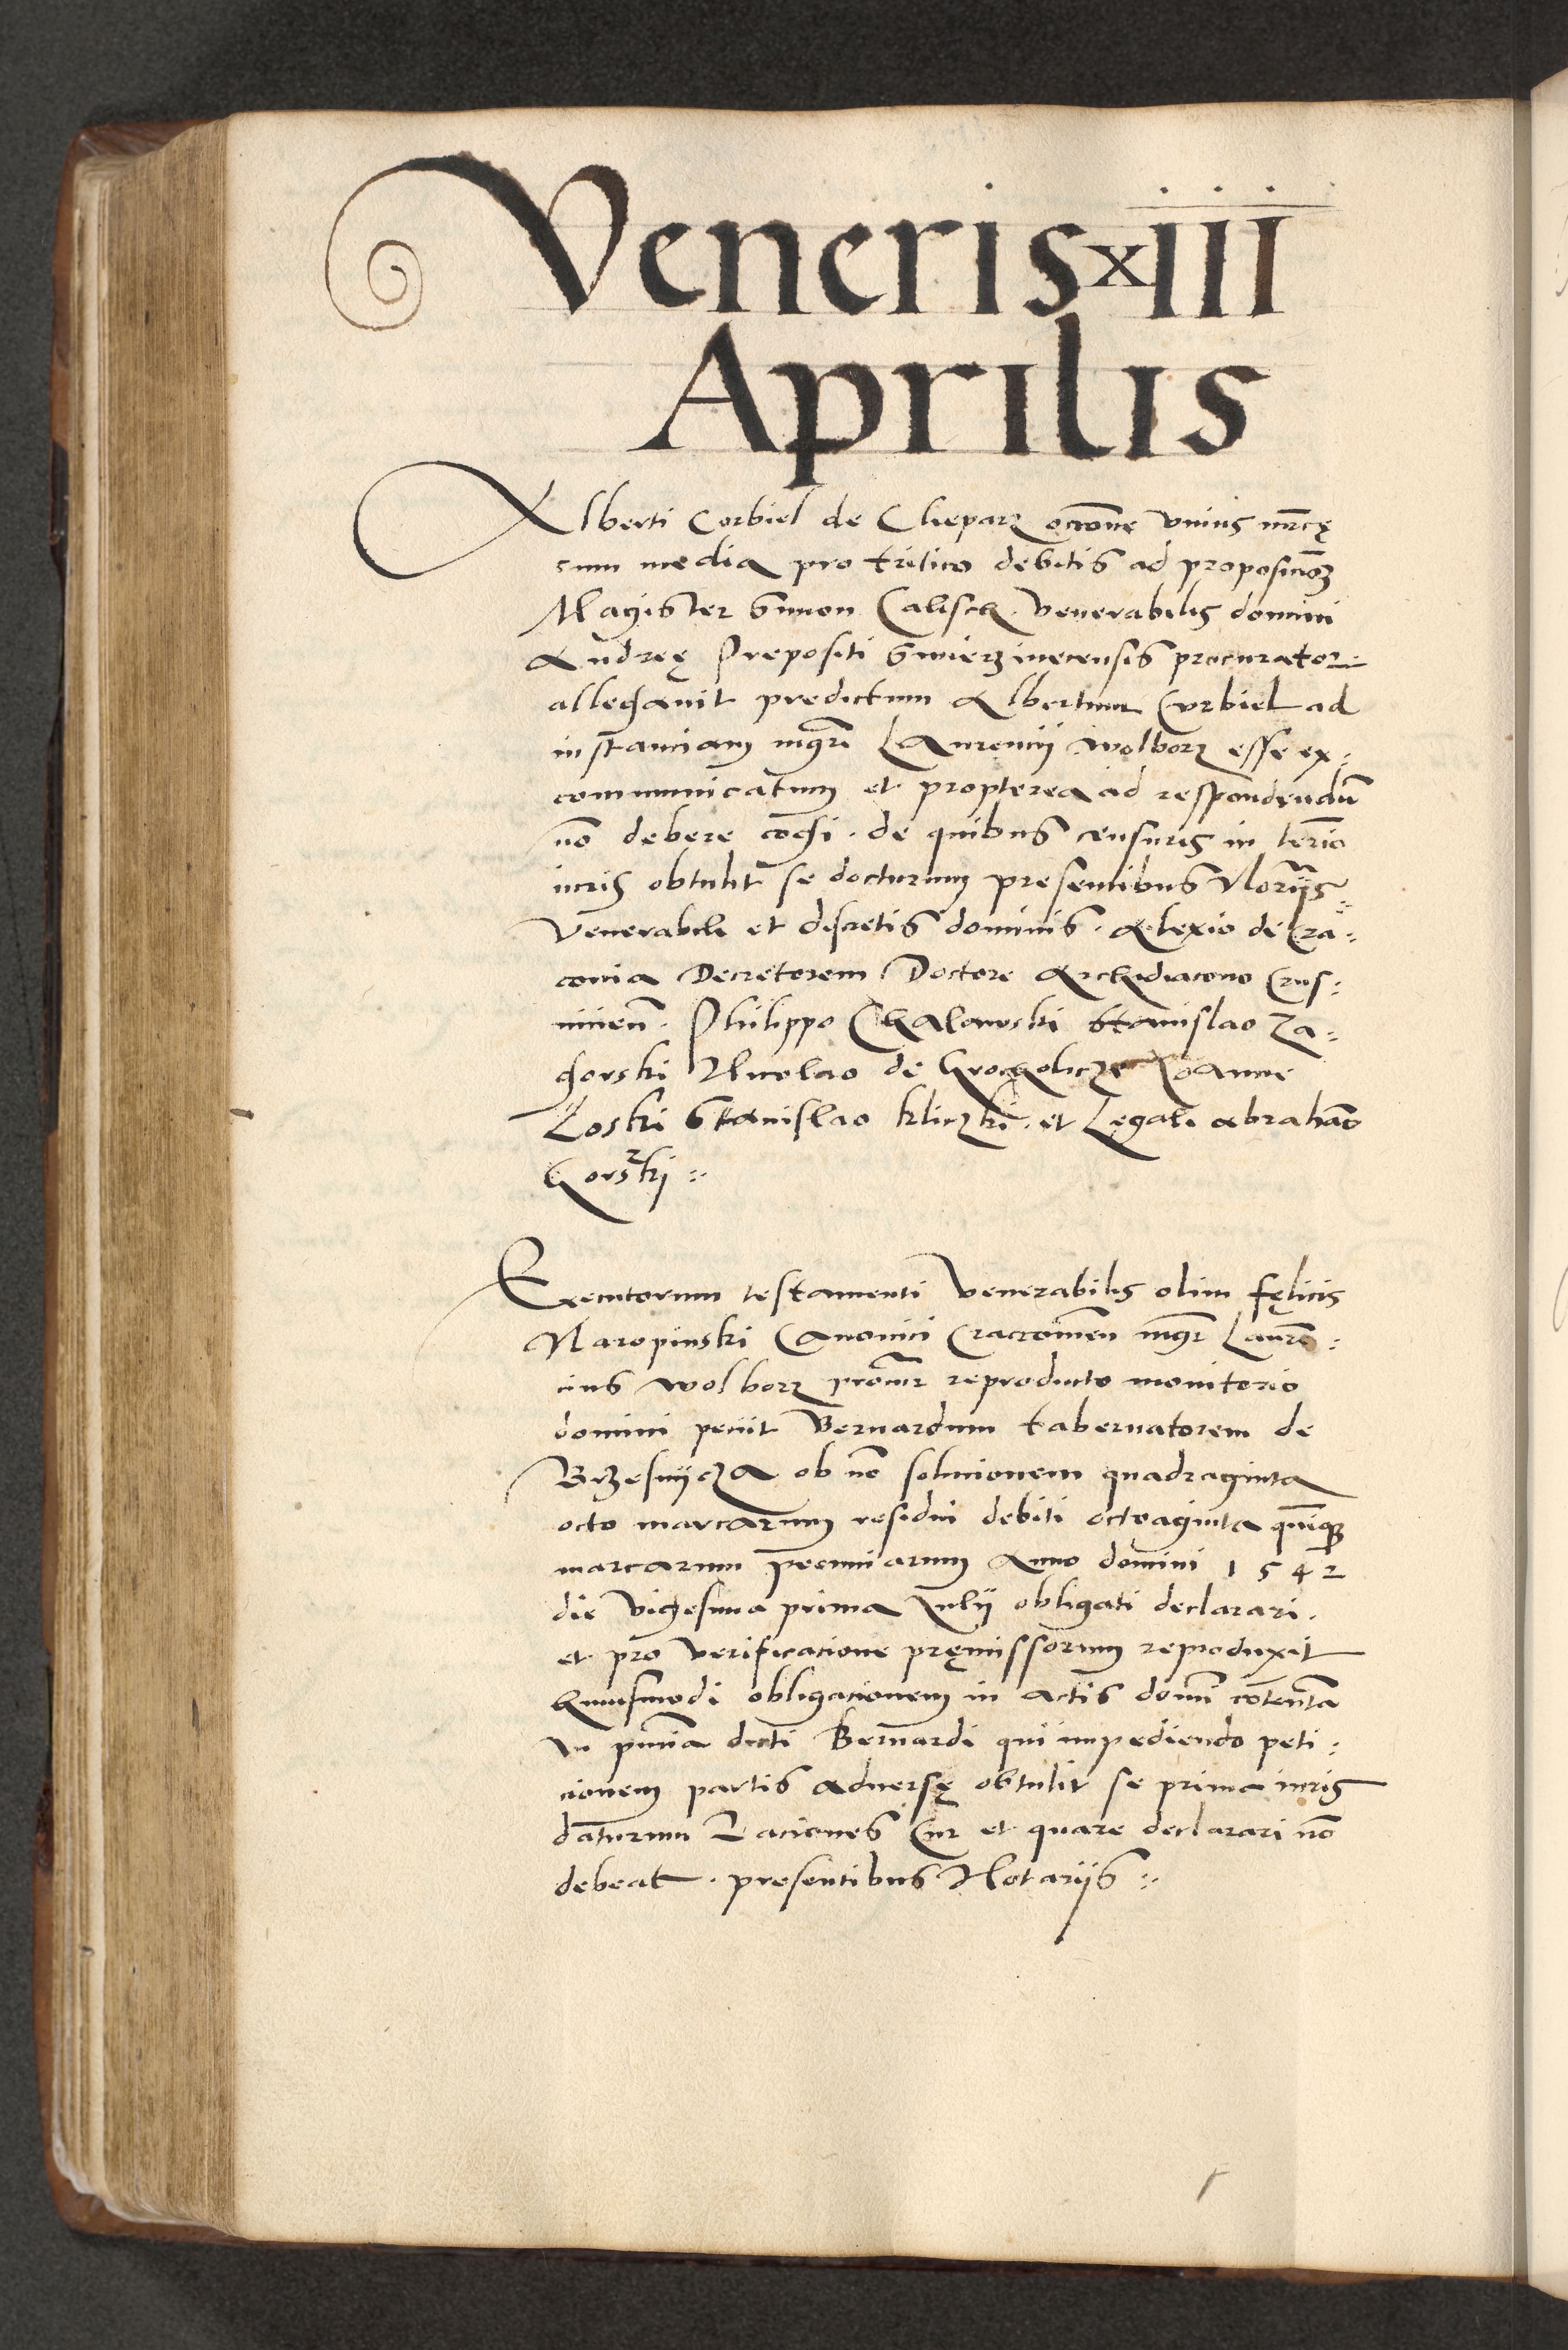 Veneris xiii
Aprilis
Alberti Corbiel de Cleparz occone unius mrcę
cum media pro tritico debitis ad proposicioē
Magister Simon Calisch. Venerabilis domini
Andreę Prepositi Swierzinecensis procurator
allegavit predictum Albertum Corbiel ad
instanciam mgri Laurencij Wolborz esse ex:
communicatum et propterea ad respondendū
nō debere cogi. de quibus censuris in termīo
iuris obtulit se docturum presentibus Noriis
Venerabili et discretis dominis. Alexio de Cra:
covia Decretorem Doctore Archidiacono Crus:
vicien. Philippo Chalawski Stanislao Za:
gorski Nicolao de Grocholicze Joanne
Loski Stanislao Kliczki. et Legali Abrahāo
Gorski
Executorum testamenti Venerabilis olim Fęlicis
Naropinski Canonici Cracovien mgr Lauren:
cius Wolborz procur reproducto monitorio
domini peciit Bernardum tabernatorem de
Brzesnycza ob nō solucionem quadraginta
octo marcarum residui debiti octoaginta quīque
marcarum pecuniarum Anno domini 1542
die Vigesima prima Julij obligati declarari.
et pro verificacione pręmissorum reproduxit
huiusmodi obligacionem in actis domī cōtentā
In pñcia dicti Bernardi qui impediendo peti:
cionem partis adversę obtulit se prima iuris
daturum Raciones Cur et quare declarari nō
debeat. presentibus Notariis